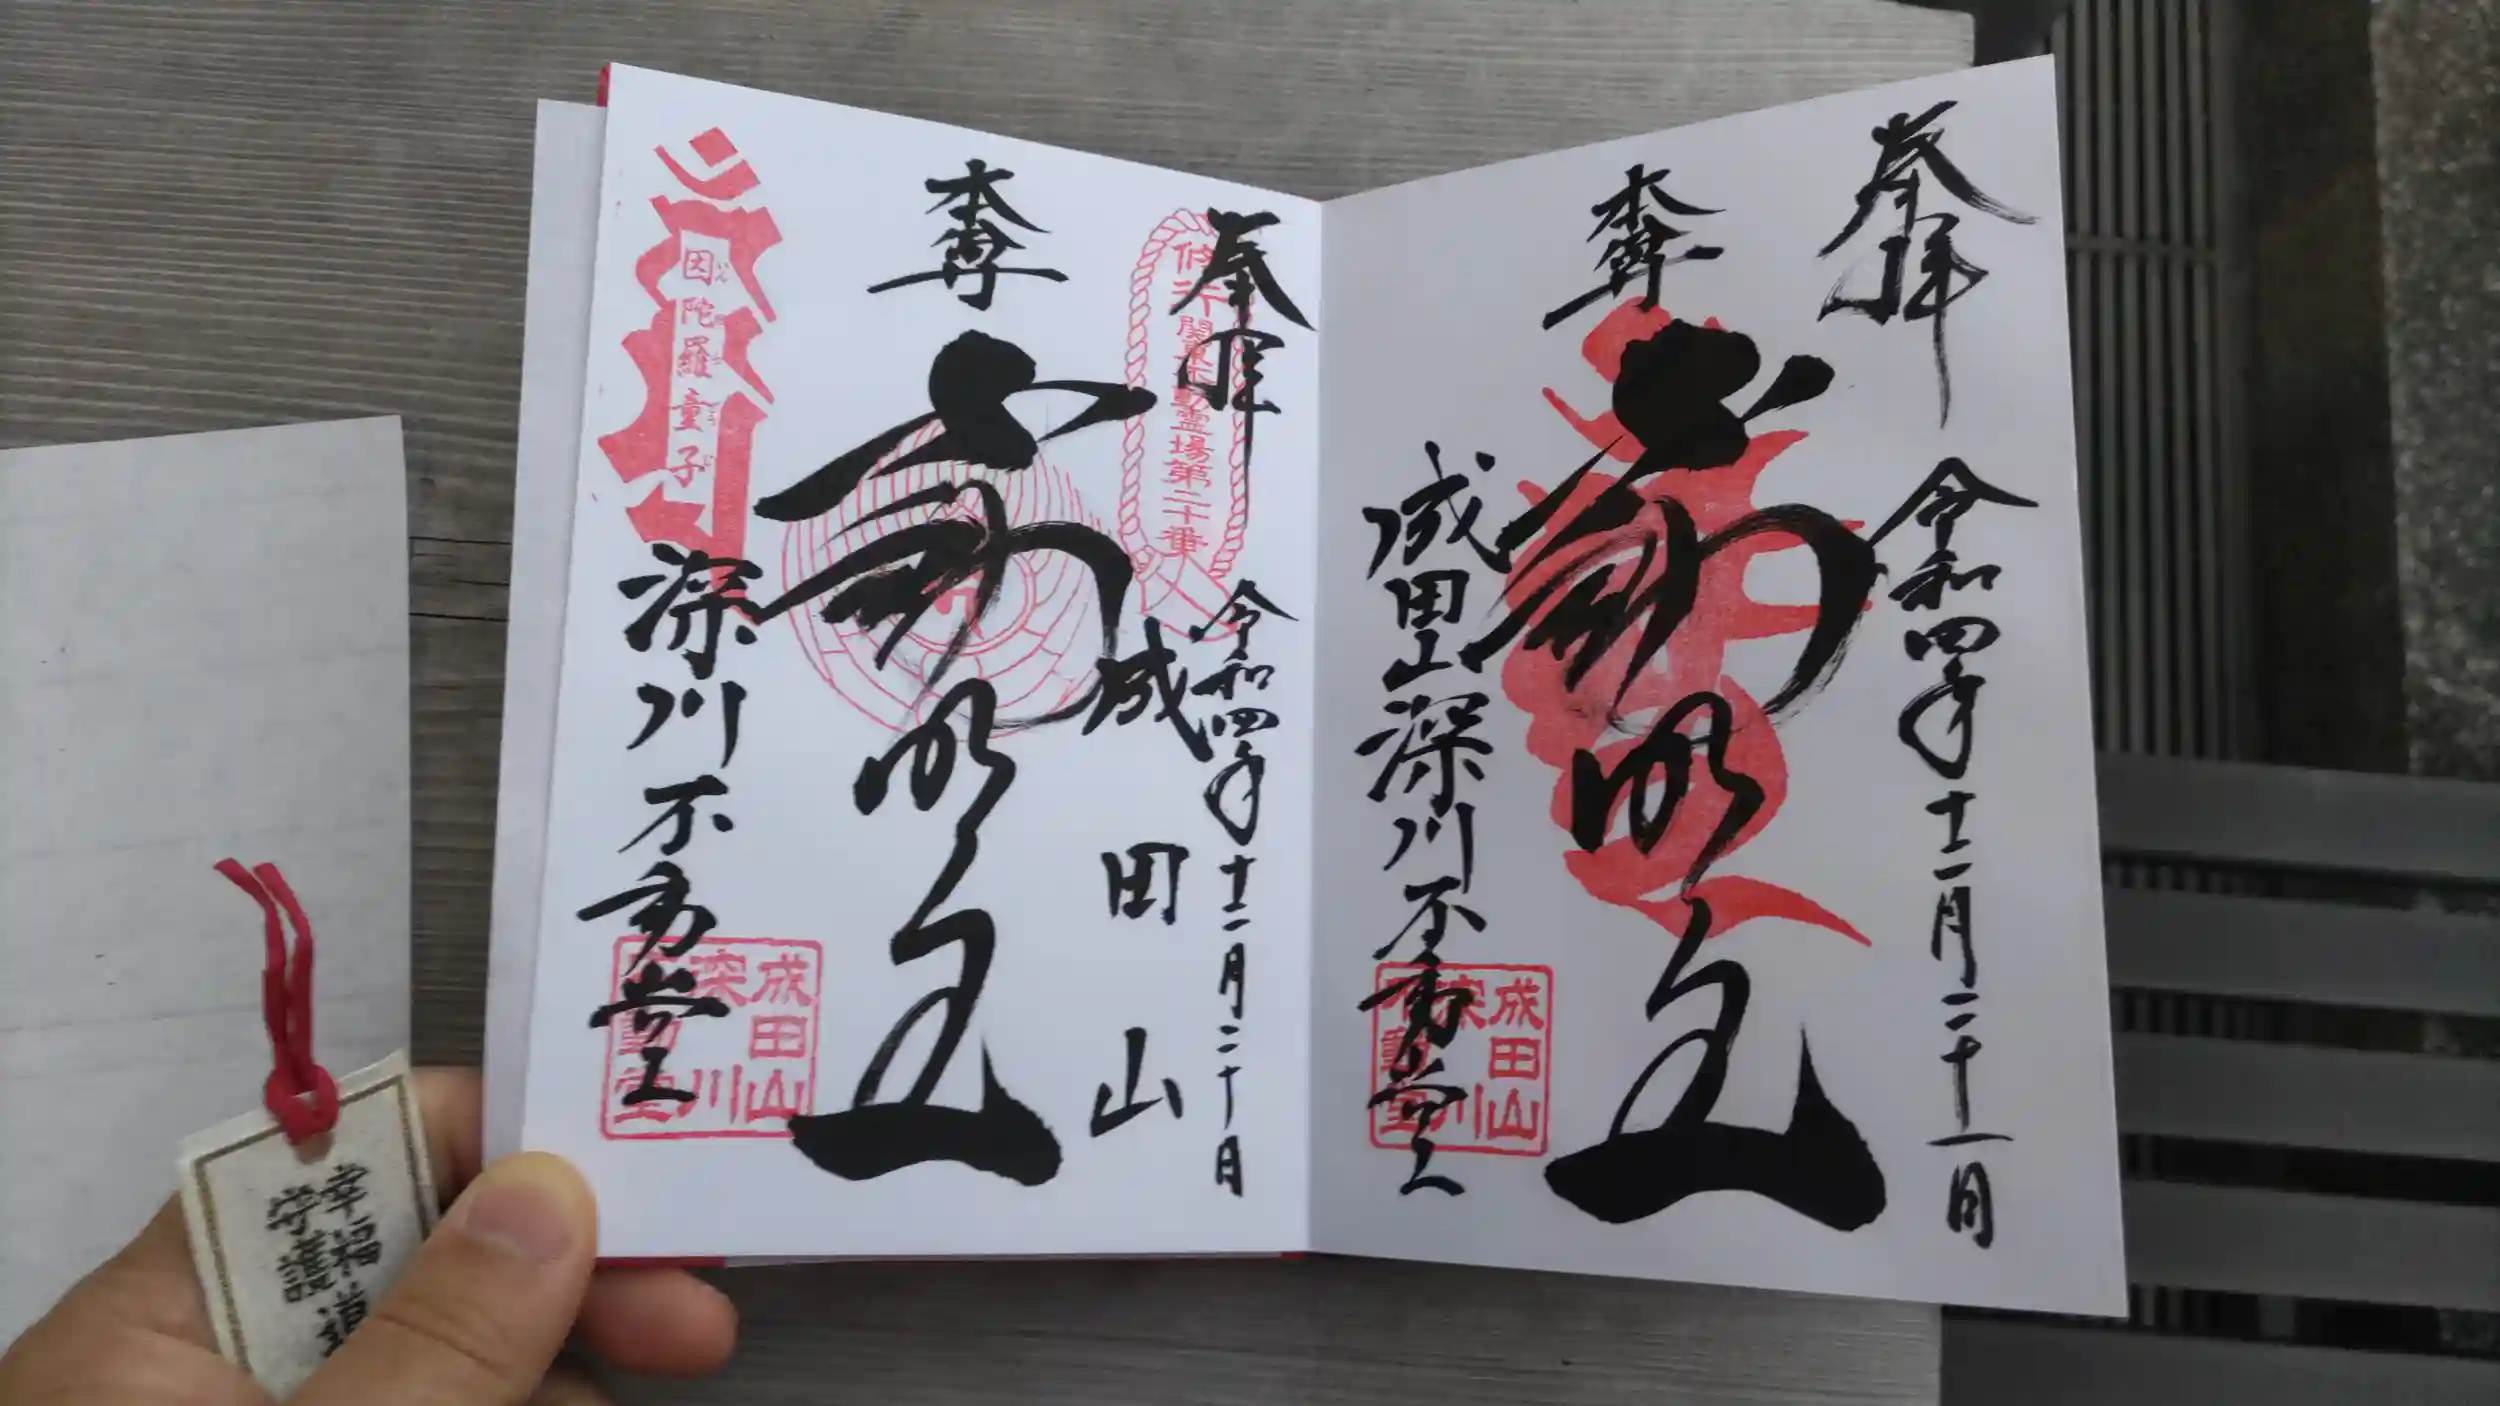 奉拝
令和四年十二月二十一日
本尊
不動明王
成田山深川不動堂
成田山
深川
不動堂
奉拝
修行
関東
動霊場第二十番
令和四年十二月二十日
成田山
本尊
不動明王
因陀羅童子
深川不動堂
成田山
深川
不動堂
幸福
守護